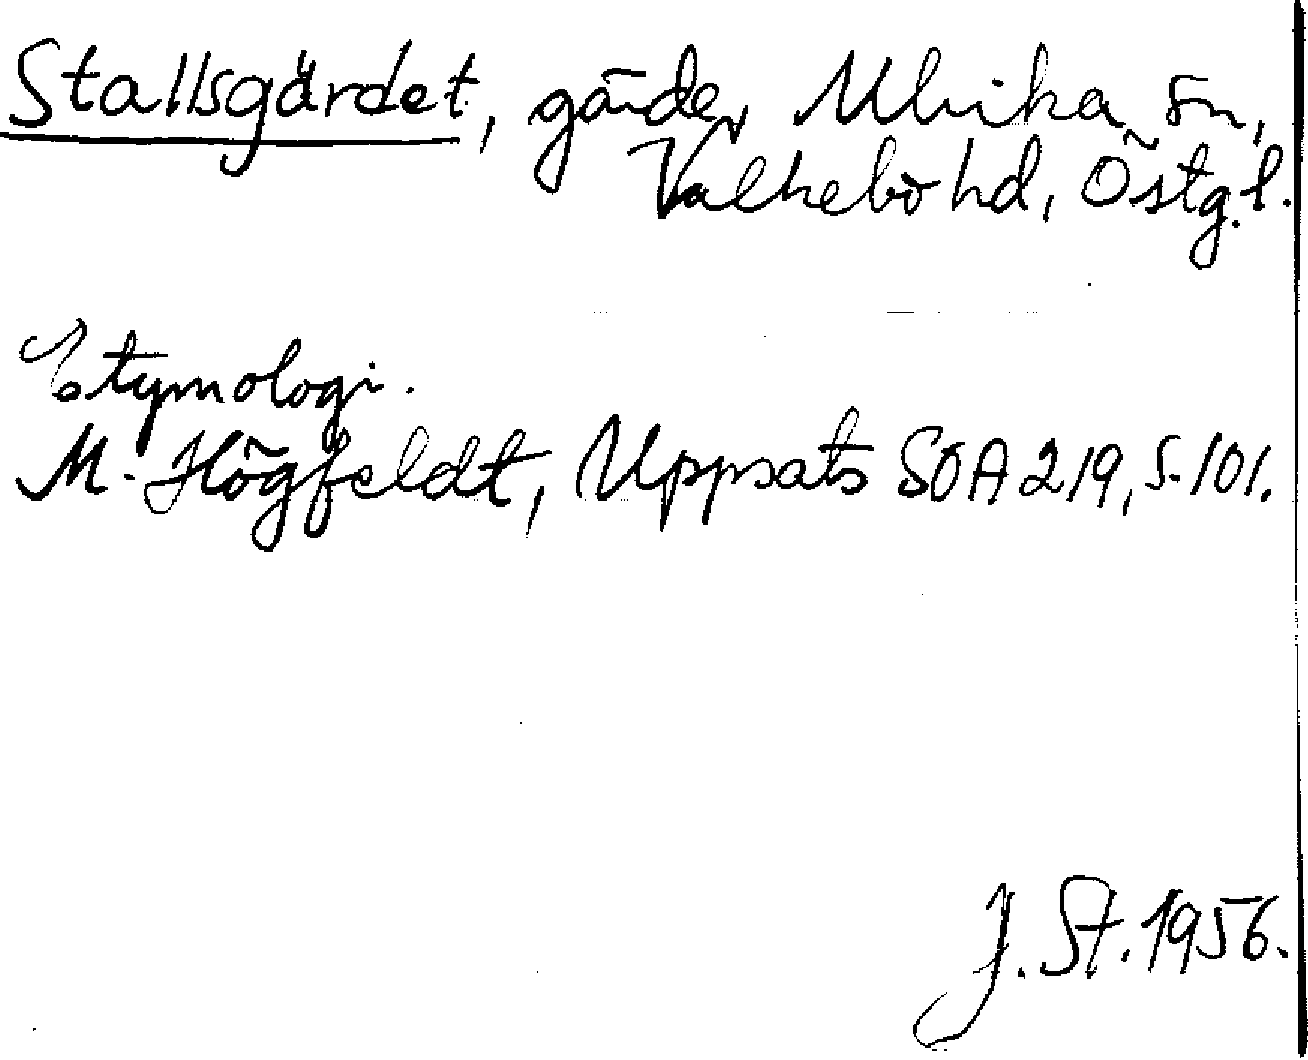 Stallsgärdet, gärde, Ulrika sn,
Valkebo hd, Östg.l.
Etymologi.
M. Högfeldt, Uppsats SOA 219, s. 101.
J. St. 1956.